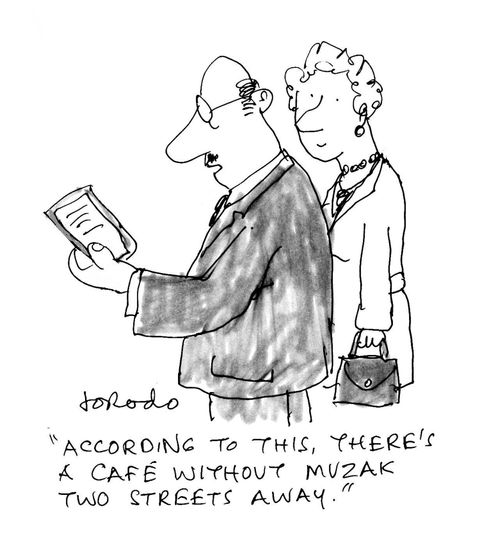 toRodo
"ACCORDING TO THIS, THERE'S
A CAFÉ WITHOUT MUZAK
TWO STREETS AWAY."